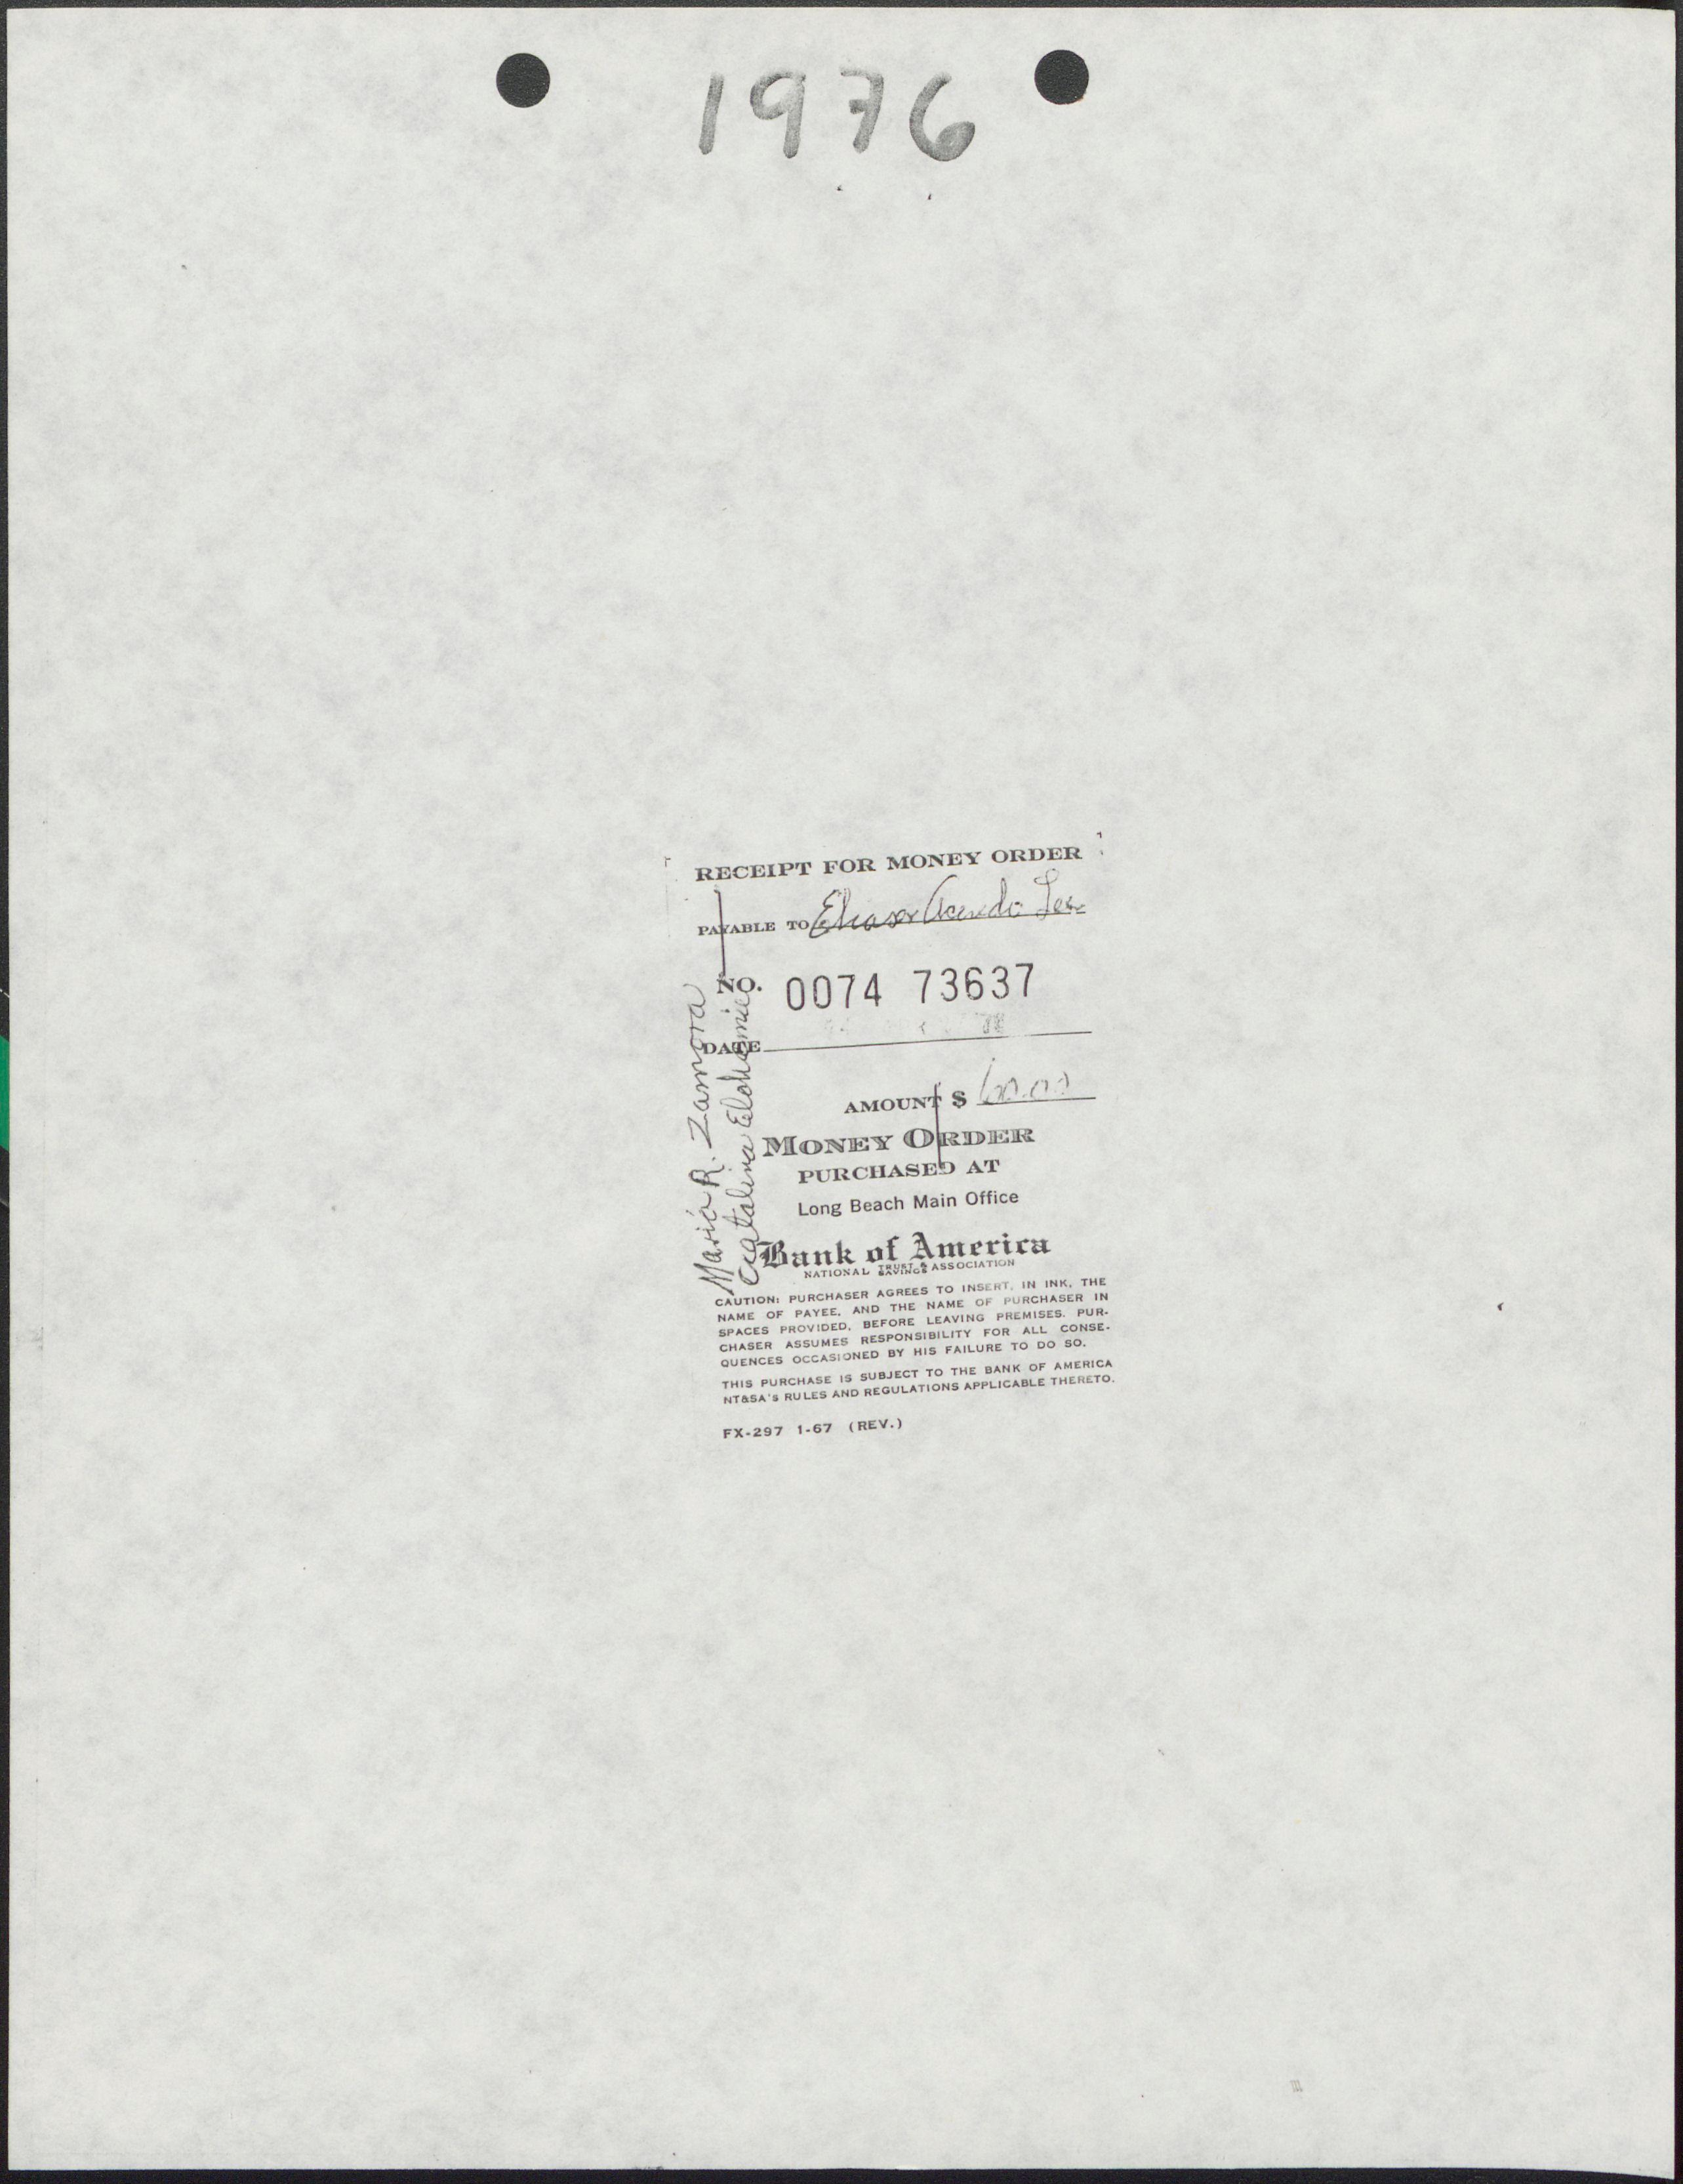 1976
RECEIPT FOR MONEY ORDER
PAYABLE TO
NO. 0074 73637
DATE
AMOUNT $
MONEY ORDER
PURCHASED AT
Long Beach Main Office
Bank of America
NATIONAL TRUST & SAVINGS ASSOCIATION
CAUTION: PURCHASER AGREES TO INSERT, IN INK, THE
NAME OF PAYEE, AND THE NAME OF PURCHASER IN
SPACES PROVIDED, BEFORE LEAVING PREMISES. PUR-
CHASER ASSUMES RESPONSIBILITY FOR ALL CONSE-
QUENCES OCCASIONED BY HIS FAILURE TO DO SO.
THIS PURCHASE IS SUBJECT TO THE BANK OF AMERICA
NT&SA'S RULES AND REGULATIONS APPLICABLE THERETO.
FX-297 1-67 (REV.)
Maria R. Zamora
Catalina